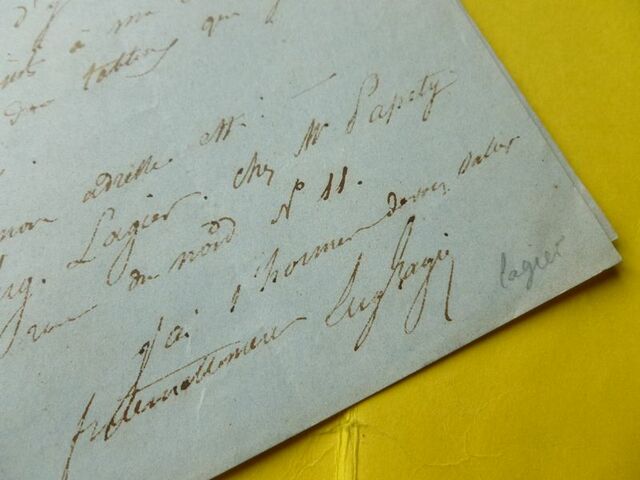 d'
à ma
des tableaux que
mon adresse est :
Eug. Lagier. chez Mr Papety
rue du nord N° 11.
J'ai l'honneur de vous saluer
fraternellement Eug Lagier
Lagier